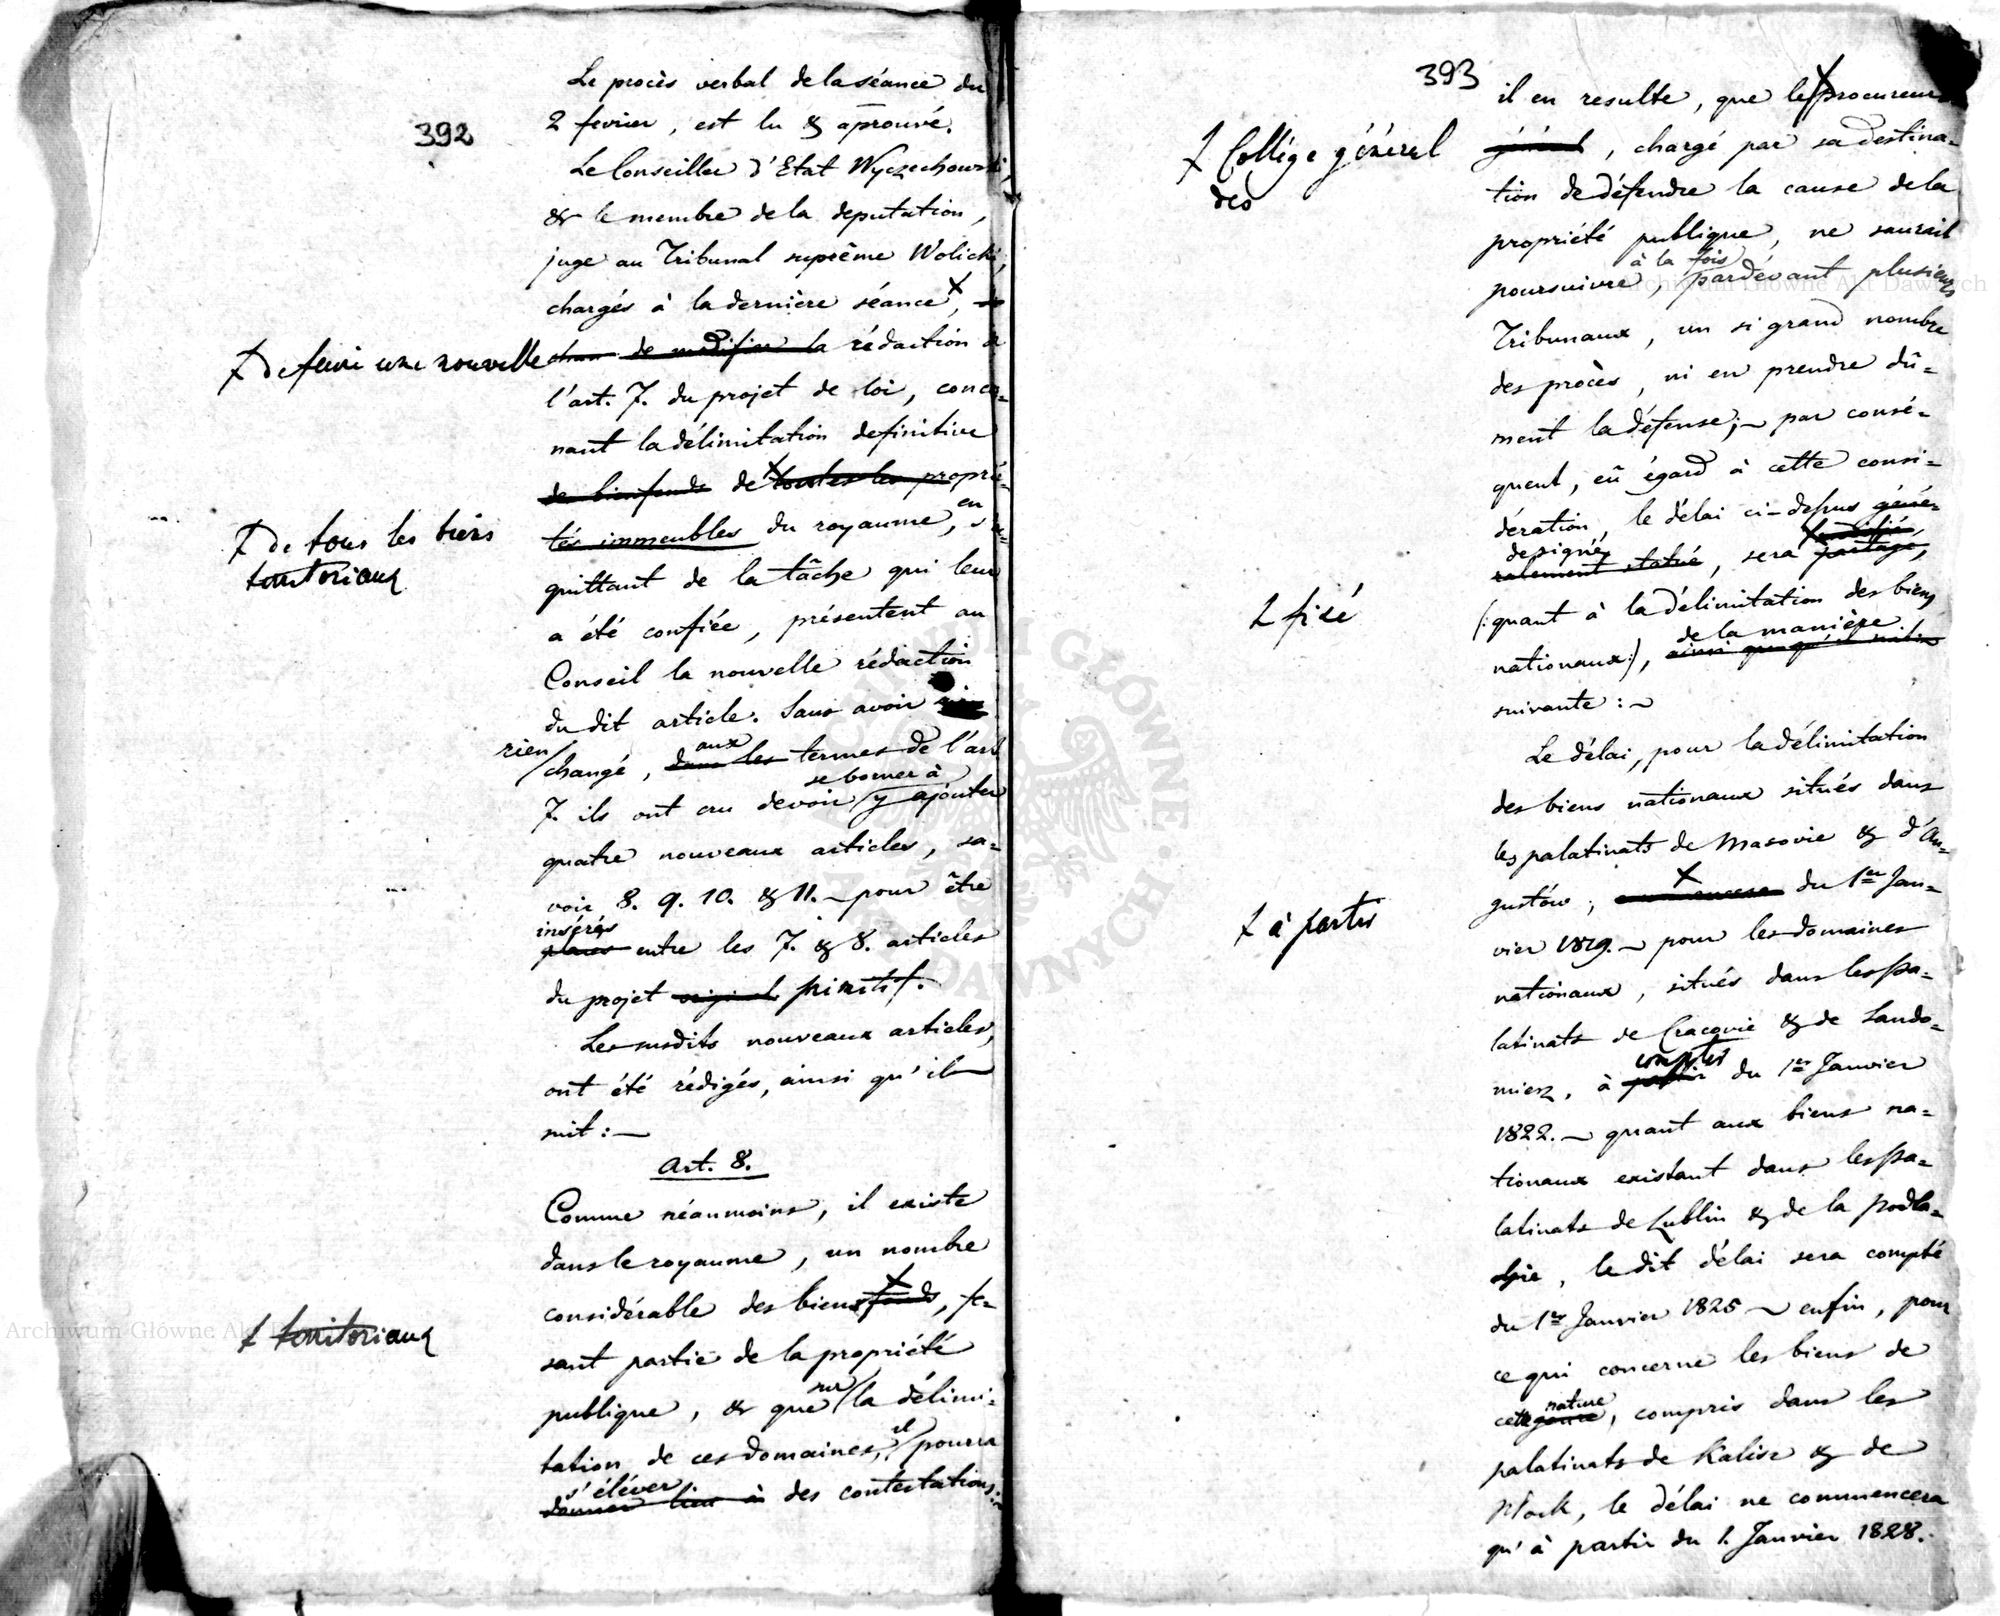 392
Le procès verbal de la séance du
2 fevrier, est lu & aprouvé.
Le Conseiller d'Etat Wyczechowski,
& le membre de la deputation,
juge au Tribunal suprême Wolicki,
chargés à la dernière séance,
de modifier la rédaction de
X De faire une nouvelle
l'art. 7. du projet de loi, concer=
nant la délimitation definitive
de bienfonds de toutes les proprié=
X De tous les biens
territoriaux
tés immeubles du royaume, en s'ac=
quittant de la tâche qui leur
a été confiée, présentent au
Conseil la nouvelle rédaction
du dit article. Sans avoir
rien changé, dans les aux termes de l'art.
7. ils ont cru devoir se borner à y ajouter
quatre nouveaux articles, sa=
voir 8. 9. 10. & 11. ~ pour être
insérés
placés entre les 7. & 8. articles
du projet original primitif.
Les susdits nouveaux articles,
ont été rédigés, ainsi qu'il
suit : —
Art. 8.
Comme néanmoins, il existe
dans le royaume, un nombre
considérable des biens fonds, fe=
X territoriaux
sant partie de la propriété
publique, & que sur la délimi=
tation de ces domaines, il pourra
s'éléver
donner lieu à des contestations:
393
il en resulte, que le procureur
X Collége général
des
général, chargé par sa destina=
tion de défendre la cause de la
propriété publique, ne saurait
à la fois
poursuivre, pardévant plusieurs
Tribunaux, un si grand nombre
des procès, ni en prendre dû=
ment la défense; ~ par consé=
quent, eû égard à cette consi=
dération, le délai ci-dessus géné=
designé
ralement statué, sera partagé,
X fixé
(: quant à la délimitation des biens
de la manière
nationaux :),
suivante : ~
Le délai, pour la délimitation
des biens nationaux situés dans
les palatinats de Masovie & d'Au=
gustów, du 1er Jan=
X à partir
vier 1819. ~ pour les domaines
nationaux, situés dans les pa=
latinats de Cracovie & de Sando=
compter
mierz, à partir du 1er Janvier
1822. ~ quant aux biens na=
tionaux existant dans les pa=
latinats de Lublin & de la Podla=
chie, le dit délai sera compté
du 1er Janvier 1825 ~ enfin, pour
ce qui concerne les biens de
nature
cette genre, compris dans les
palatinats de Kalisz & de
Plock, le délai ne commencera
qu'à partir du 1. Janvier 1828.
Archiwum Główne Akt Dawnych
Archiwum Główne Akt
ARCHIWUM GŁÓWNE AKT DAWNYCH